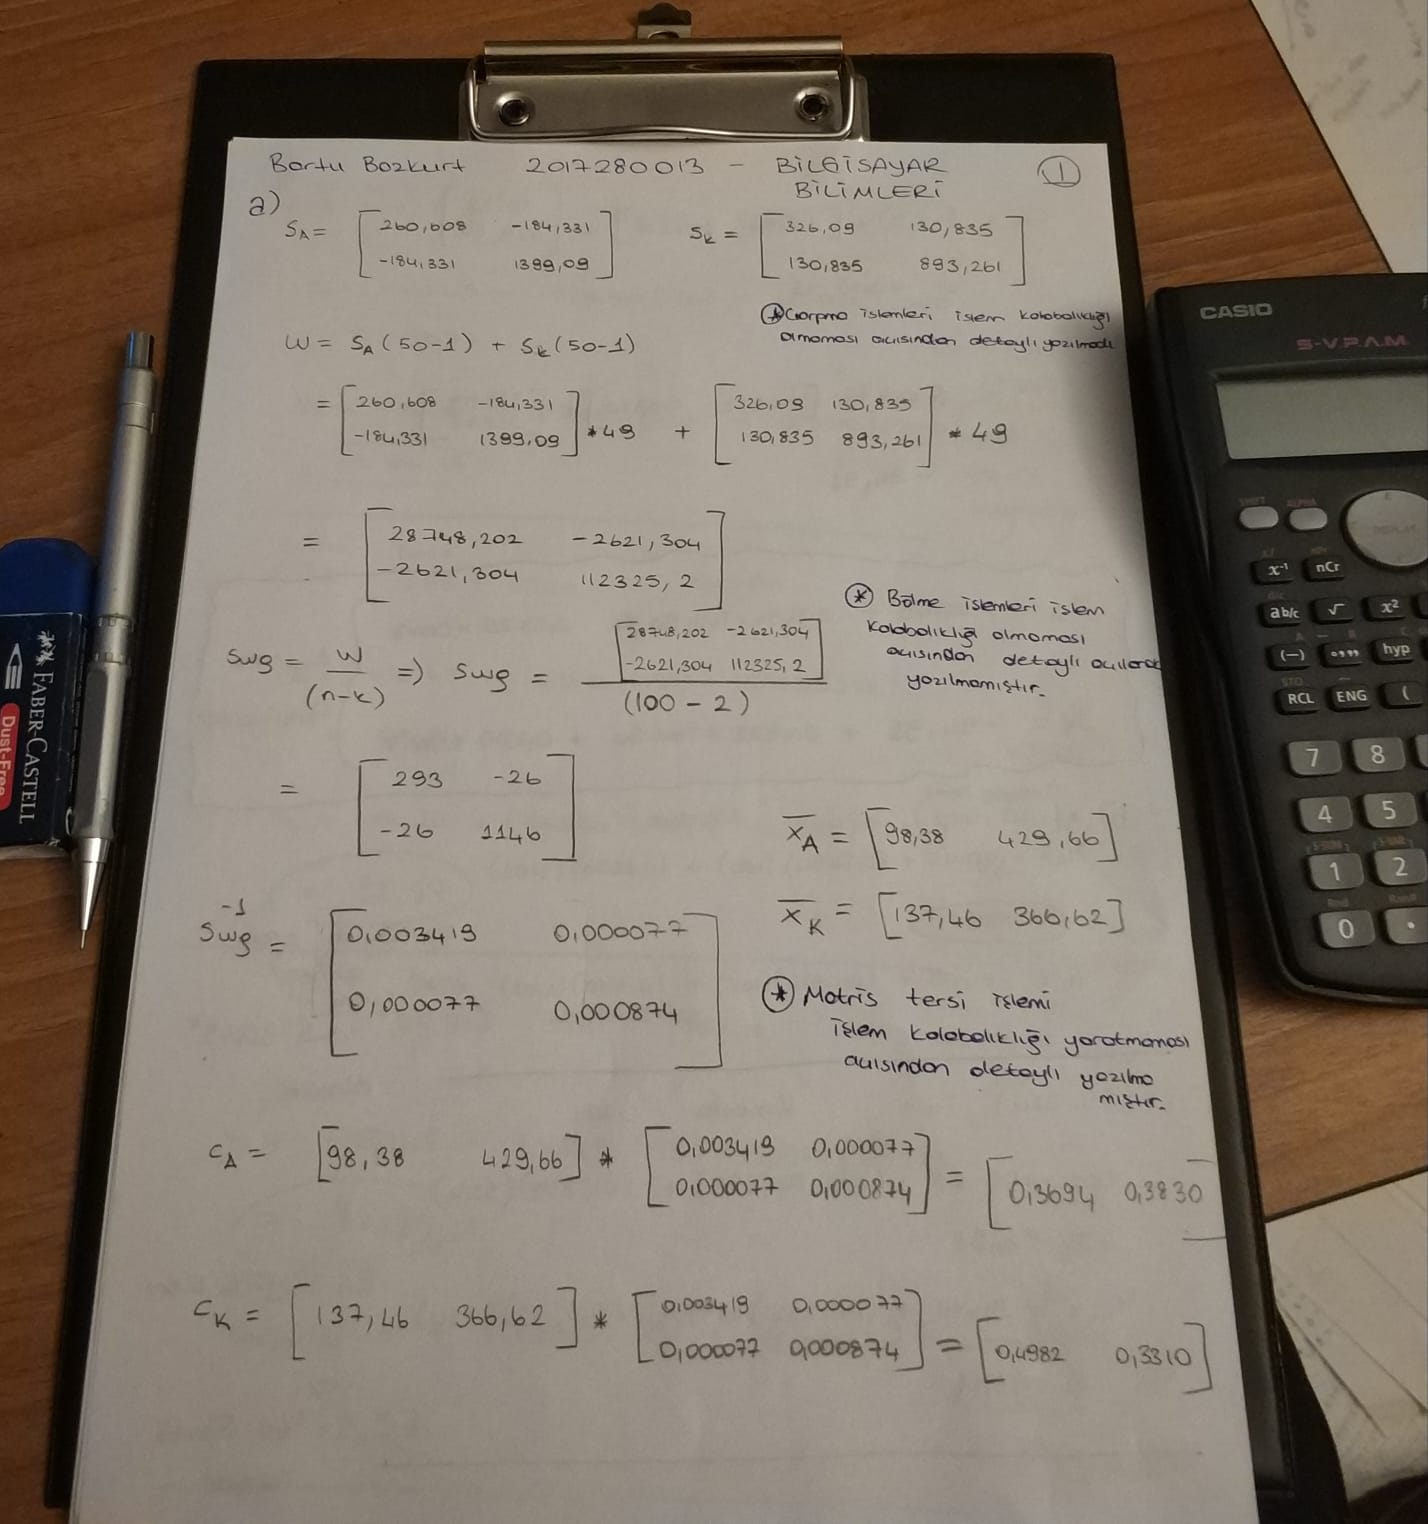 Bartu Bozkurt 2017280013 - BİLGİSAYAR
BİLİMLERİ
1
a)
SA = [260,608 -184,331
-184,331 1399,09]
Sk = [326,09 130,835
130,835 893,261]
* Çarpma işlemleri işlem kalabalıklığı
olmaması açısından detaylı yazılmadı
W = SA (50-1) + Sk (50-1)
= [260,608 -184,331
-184,331 1399,09] * 49 + [326,09 130,835
130,835 893,261] * 49
= [28748,202 -2621,304
-2621,304 112325,2]
* Bölme işlemleri işlem
kalabalıklığı olmaması
açısından detaylı açılarak
yazılmamıştır.
Swg = W / (n-k) => Swg = [28748,202 -2621,304
-2621,304 112325,2]
(100 - 2)
= [293 -26
-26 1146]
XA = [98,38 429,66]
XK = [137,46 366,62]
Swg -1 = [0,003419 0,000077
0,000077 0,000874]
* Matris tersi işlemi
işlem kalabalıklığı yaratmaması
açısından detaylı yazılma
mıştır.
CA = [98,38 429,66] * [0,003419 0,000077
0,000077 0,000874] = [0,3694 0,3830
CK = [137,46 366,62] * [0,003419 0,000077
0,000077 0,000874] = [0,4982 0,3310]
FABER-CASTELL
Dust-Free
CASIO
S-V.P.A.M.
SHIFT ALPHA
REPLAY
x-1 nCr
ab/c √ x²
(-) °,,, hyp
STO
RCL ENG (
7 8
4 5
S-SUM S-VAR
1 2
Rnd Ran#
0 .